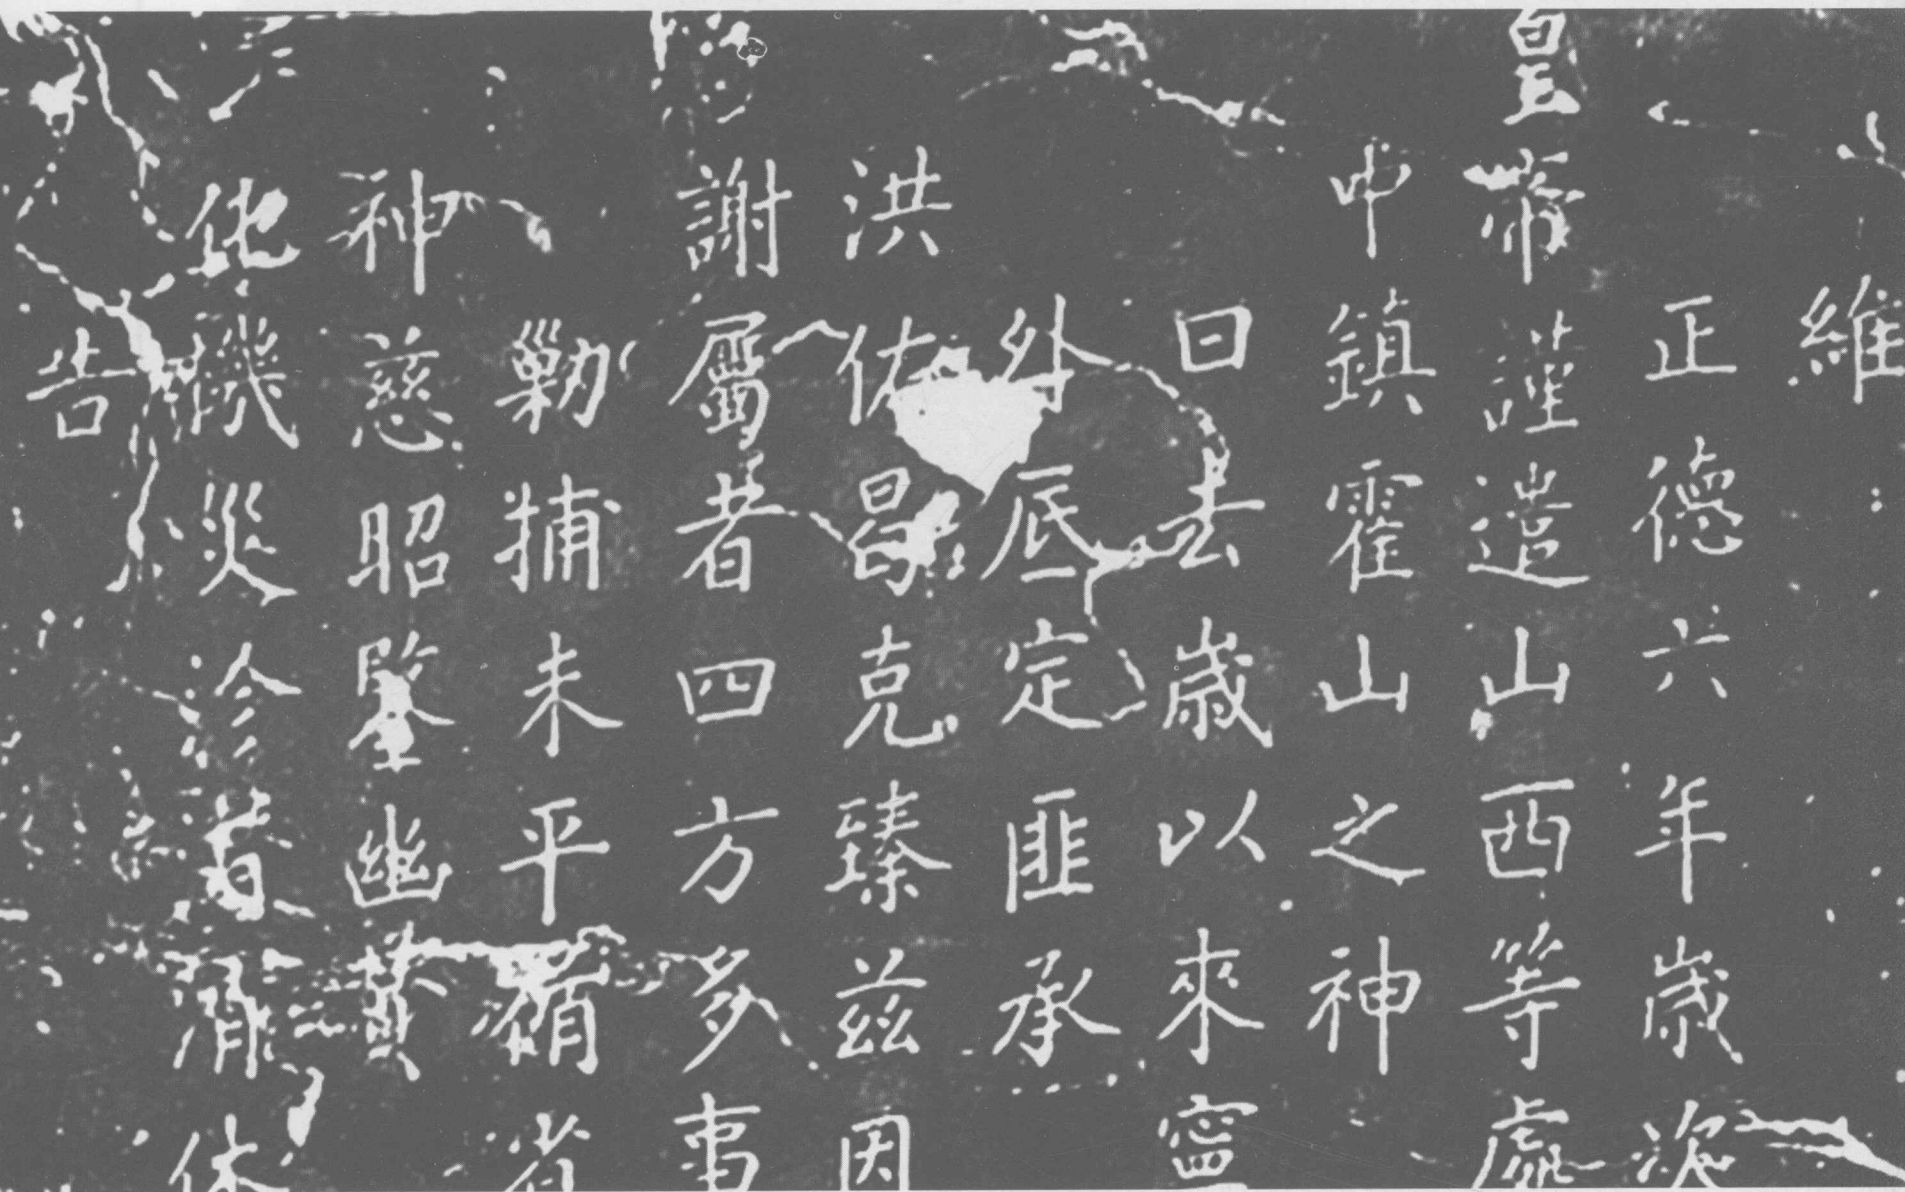 維
正德六年歲次
皇帝謹遣山西等處
中鎮霍山之神
曰去歲以來寧
外底定匪承
洪佑曷克臻茲因
謝屬者四方多事
勦捕未平
神慈昭鑒幽贊
化機災沴潛消
告